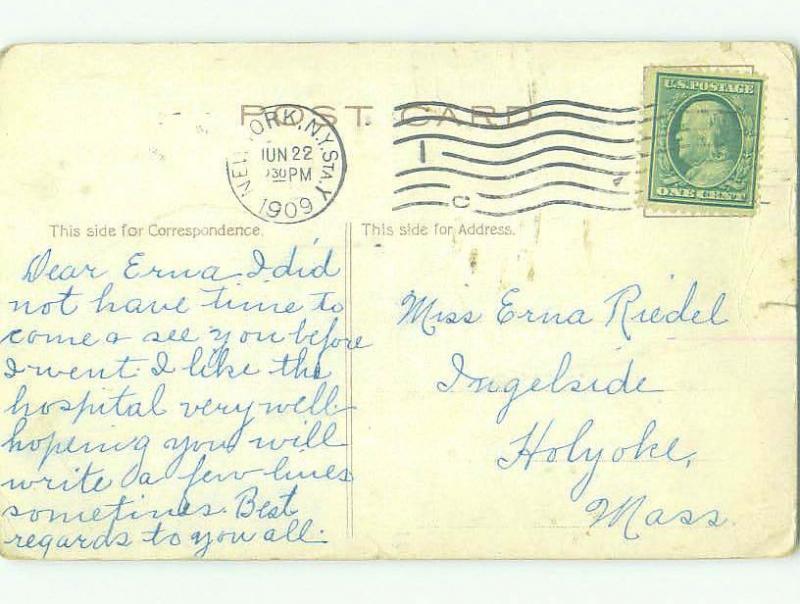 POST CARD
U.S. POSTAGE
ONE CENT
NEW YORK, N.Y. STA Y
JUN 22
30 PM
1909
This side for Correspondence.
This side for Address.
Dear Erna I did
not have time to
come a see you before
I went. I like the
hospital very well
hopeing you will
write a few lines
sometines. Best
regards to you all.
Miss Erna Riedel
Ingelside
Holyoke,
Mass.